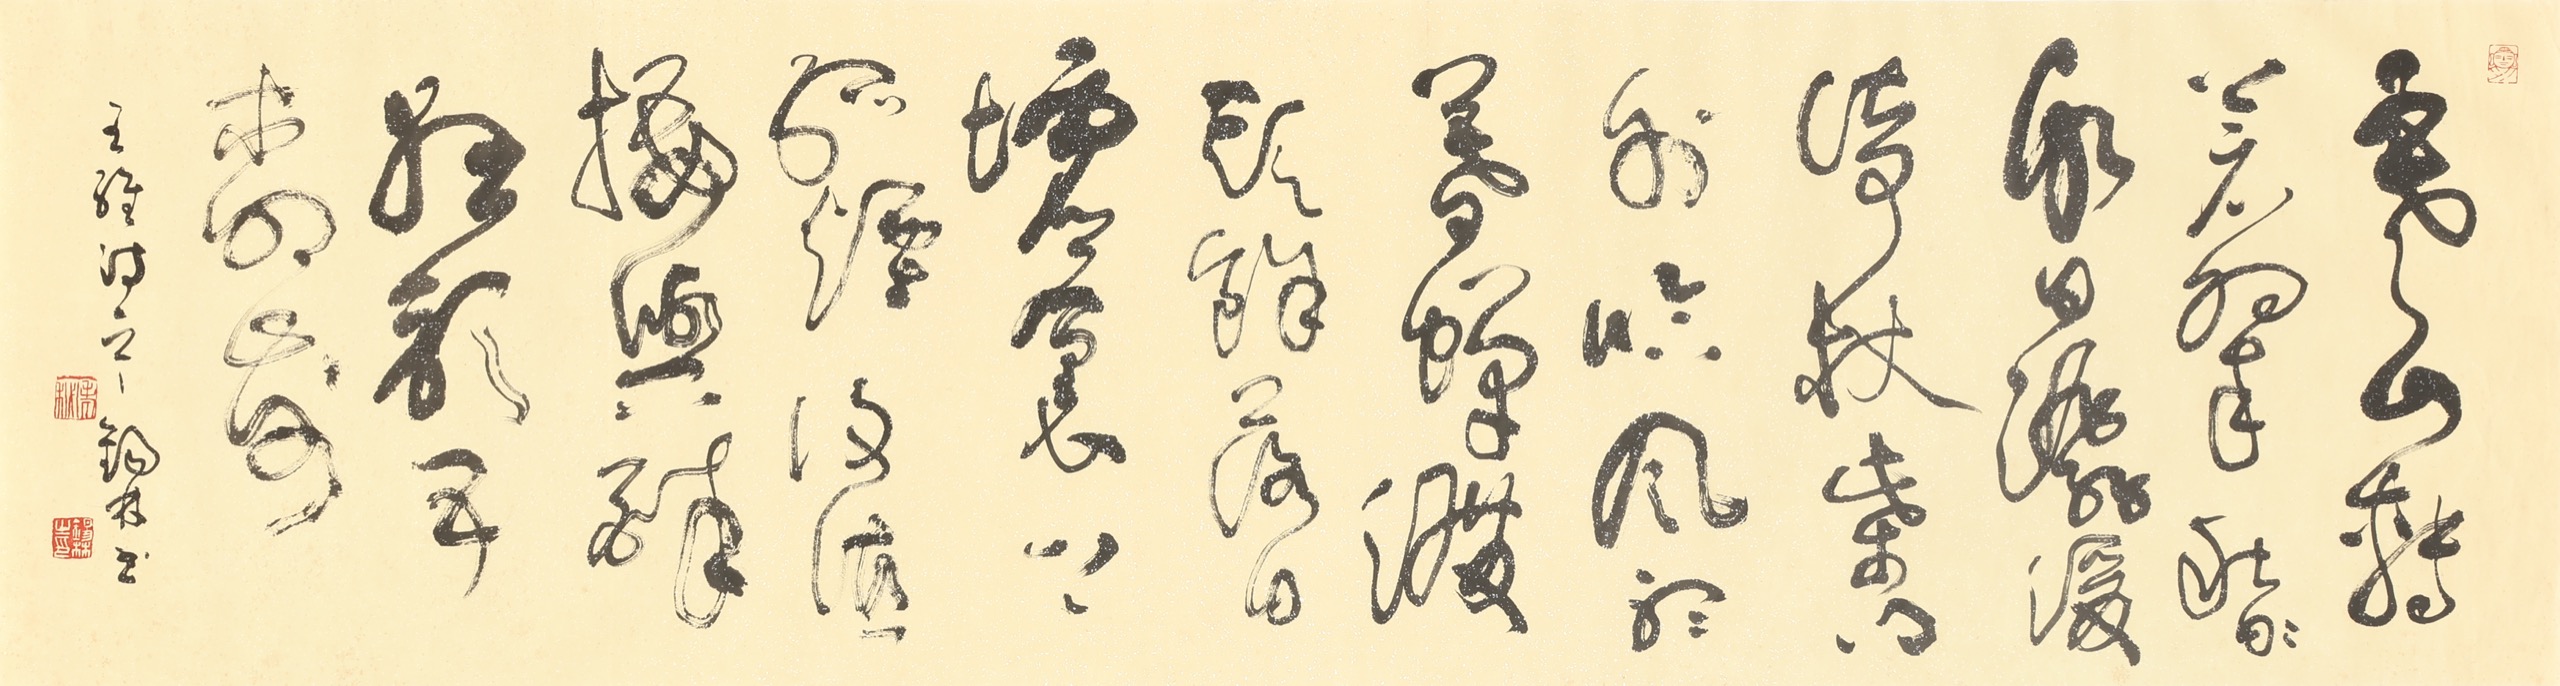 寒山轉
蒼翠秋
水日潺湲
倚杖柴門
外臨風聽
暮蟬渡
頭餘落日
墟裏上
孤煙復值
接輿醉
狂歌五
柳前
王維詩 錫林書